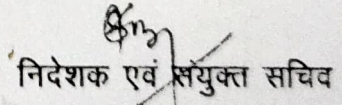 निदेशक एवं संयुक्त सचिव